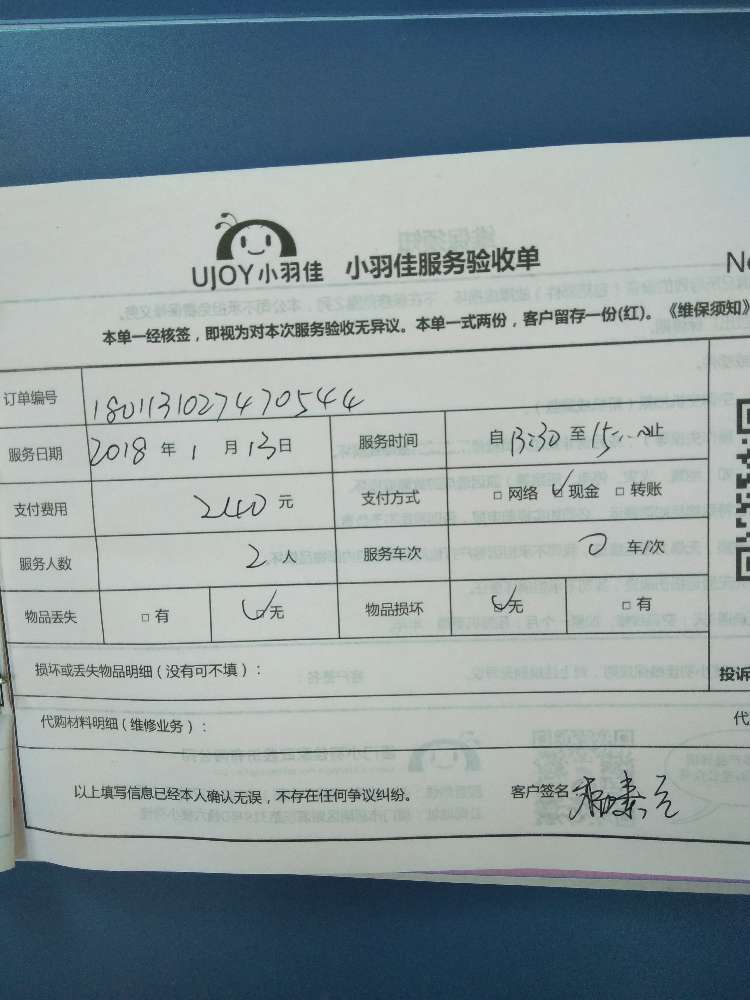 UJOY小羽佳 小羽佳服务验收单
本单一经核签，即视为对本次服务验收无异议。本单一式两份，客户留存一份(红)。《维保须知》
订单编号 1801131027470544
服务日期 2018 年 1 月 13 日 服务时间 自 13:30 至 15:00 止
支付费用 240 元 支付方式 □ 网络 ☑ 现金 □ 转账
服务人数 2 人 服务车次 0 车/次
物品丢失 □ 有 ☑ 无 物品损坏 ☑ 无 □ 有
损坏或丢失物品明细（没有可不填）：
投诉
代购材料明细（维修业务）：
代
以上填写信息已经本人确认无误，不存在任何争议纠纷。 客户签名